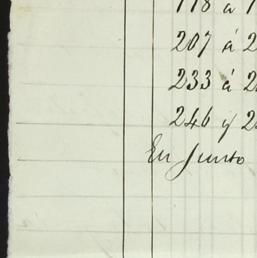 118 a 1
207 á 2
233 á 2
246 y 2
En Junto